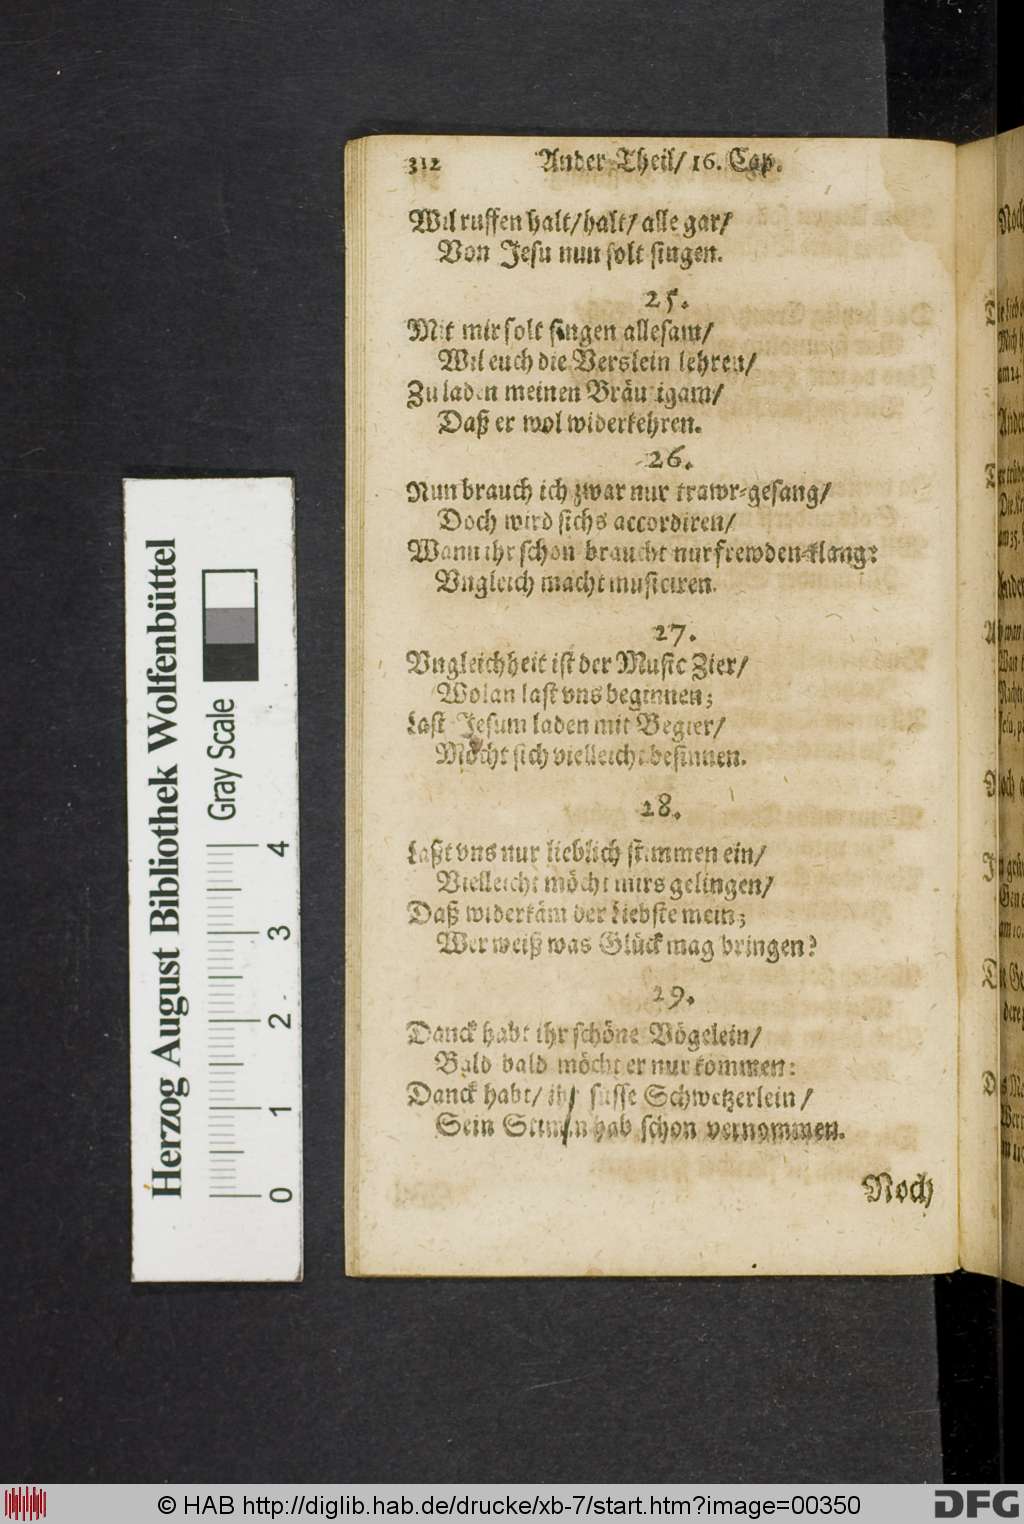 312 Ander Theil/ 16. Cap.
Wil ruffen halt/ halt/ alle gar/
Von Jesu nun solt singen.
25.
Mit mir solt singen allesam/
Wil euch die Verslein lehren/
Zu laden meinen Bräutigam/
Daß er wol widerkehren.
26.
Nun brauch ich zwar nur trawr-gesang/
Doch wird sichs accordiren/
Wann ihr schon braucht nur frewden-klang:
Vngleich macht musiciren.
27.
Vngleichheit ist der Music Zier/
Wolan last vns beginnen;
Last Jesum laden mit Begier/
Möcht sich vielleicht besinnen.
28.
Laßt vns nur lieblich stimmen ein/
Vielleicht möcht mirs gelingen/
Daß widerkäm der Liebste mein;
Wer weiß was Glück mag bringen?
29.
Danck habt ihr schöne Vögelein/
Bald bald möcht er nur kommen:
Danck habt/ ihr süsse Schwetzerlein/
Sein Stimm hab schon vernommen.
Noch
Herzog August Bibliothek Wolfenbüttel
Gray Scale
0 1 2 3 4
© HAB http://diglib.hab.de/drucke/xb-7/start.htm?image=00350
DFG